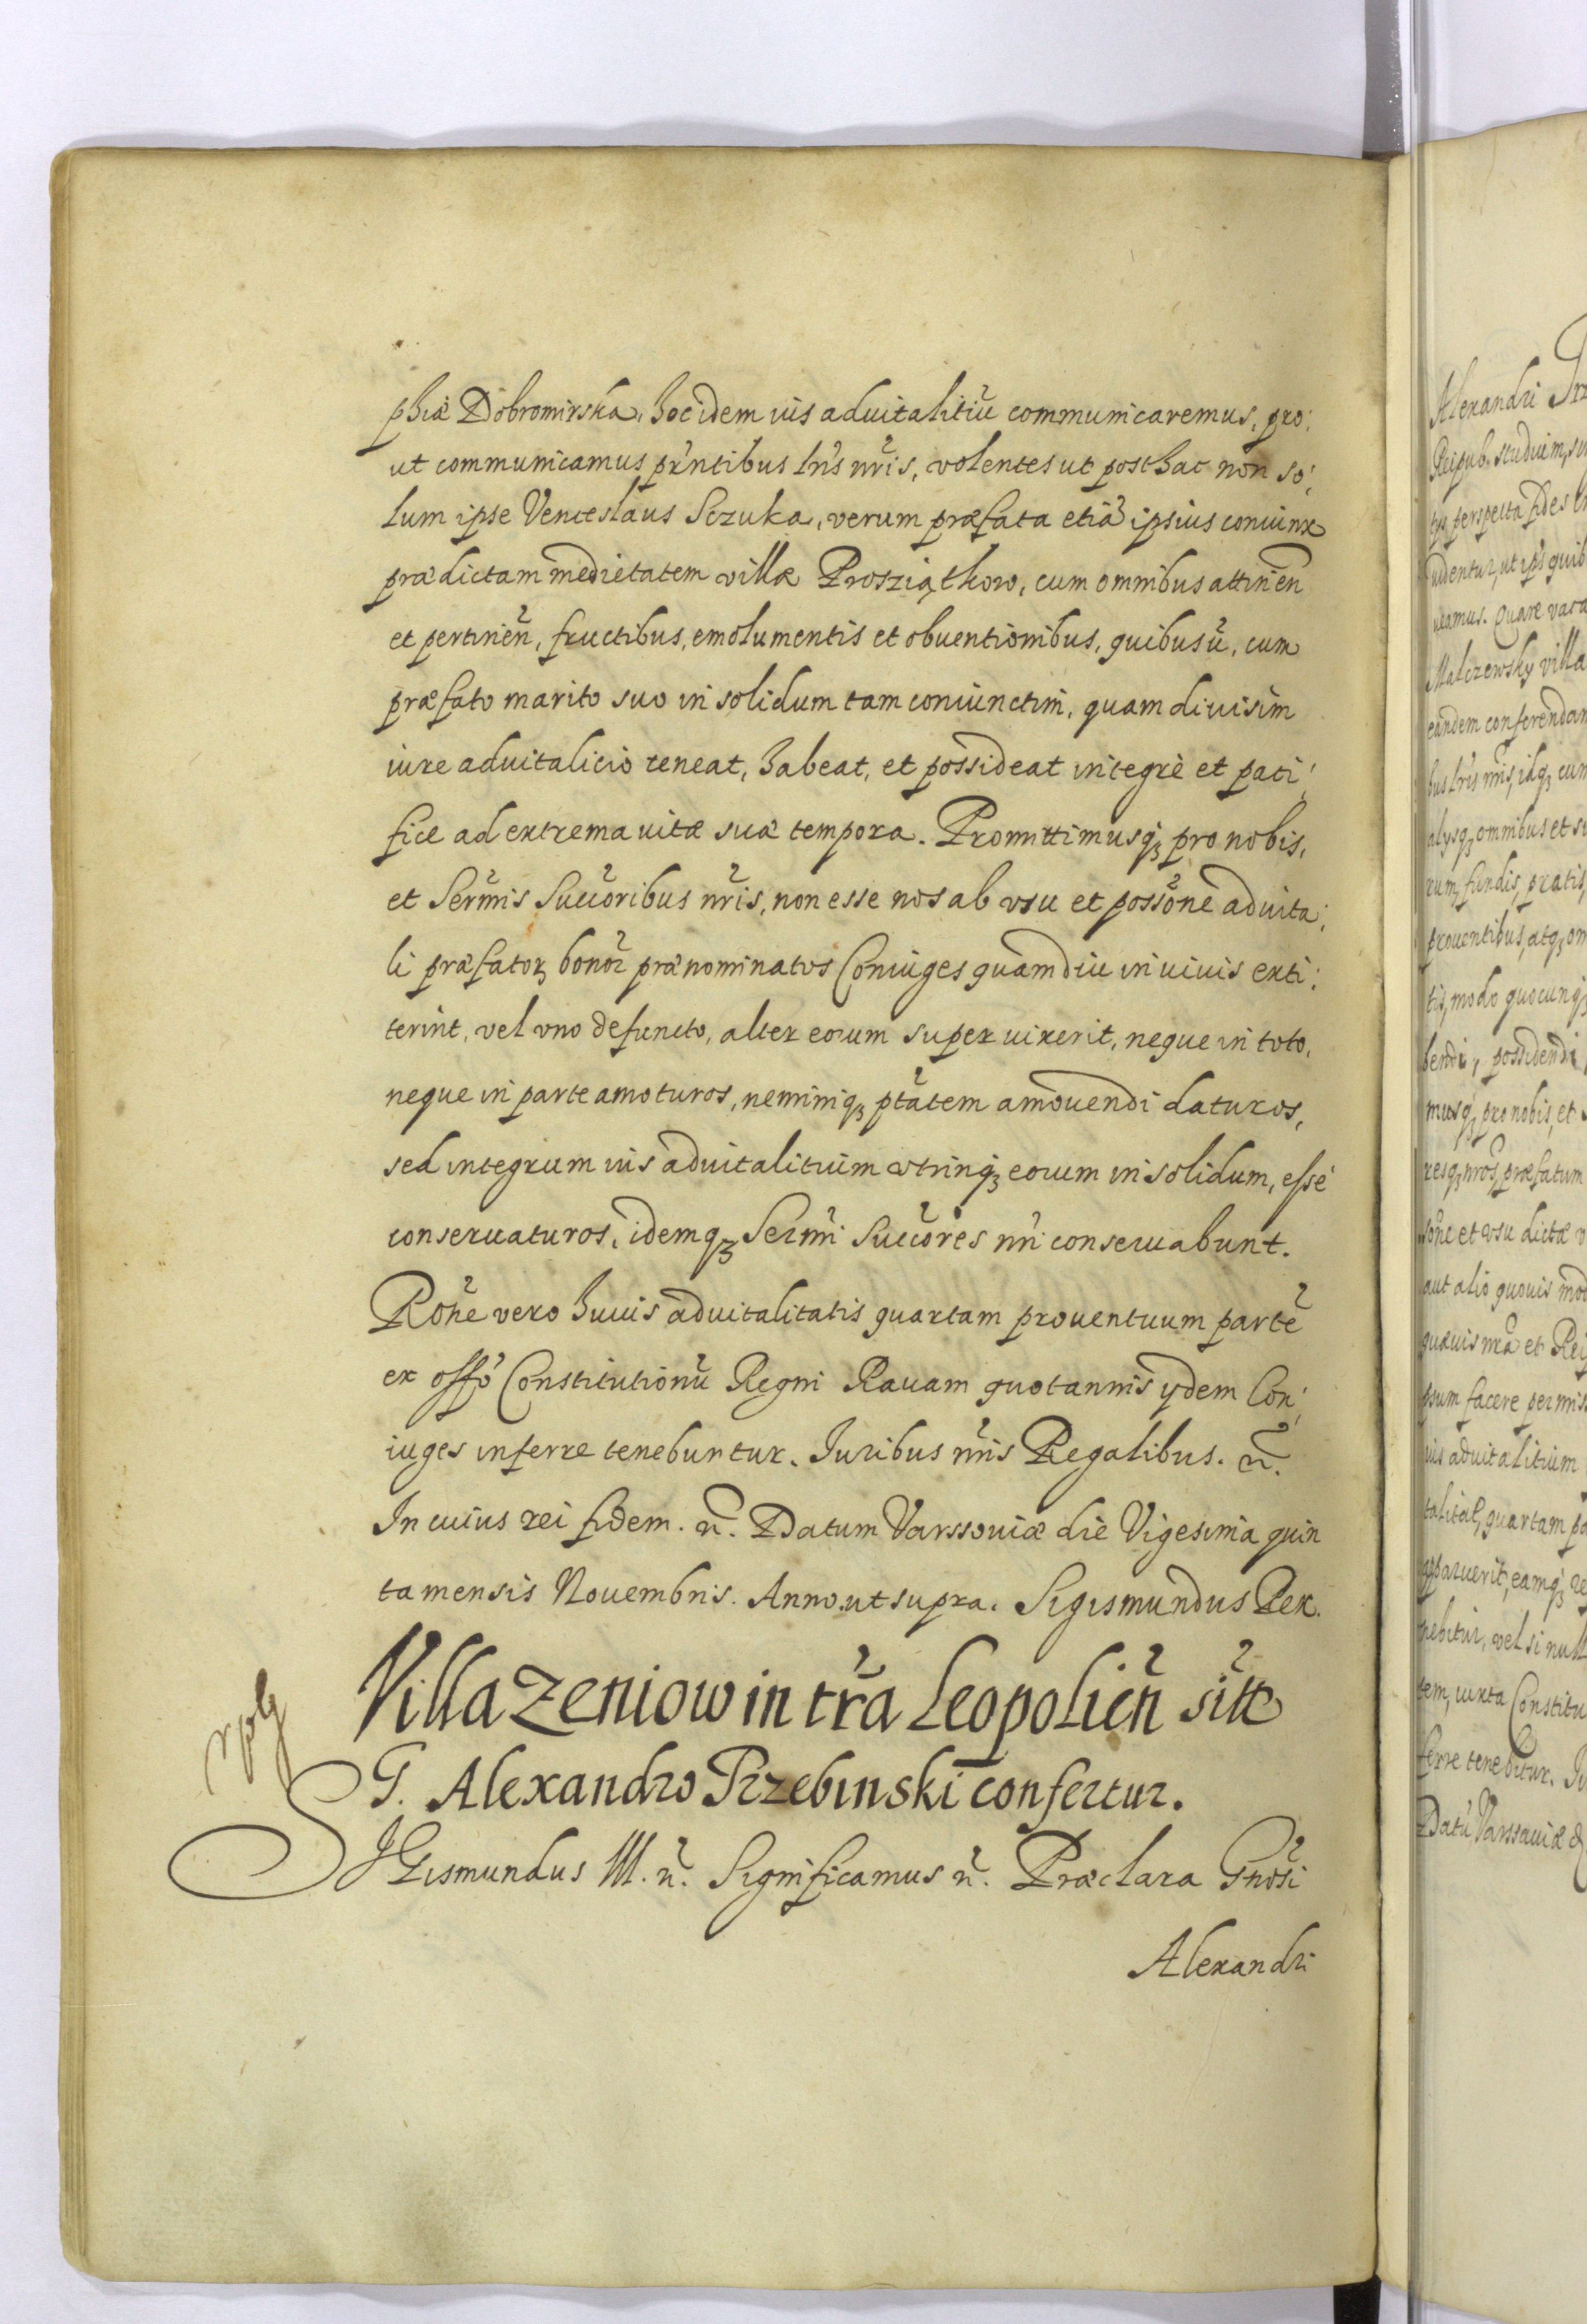 phiæ Dobromirska, hoc idem ius aduitalitiũ communicaremus, pro:
ut communicamus pr̃ntibus lr̃is nr̃is, volentes ut posthac non so:
lum ipse Venceslaus Sczuka, verum præfata etiã ipsius coniunx
prædictam medietatem villæ Prosziąthow, cum omnibus attineñ
et pertineñ, fructibus, emolumentis et obuentionibus, quibusũ, cum
præfato marito suo in solidum tam coniunctim, quam diuisim
iure aduitalicio teneat, habeat, et possideat integrè et paci:
fice ad extrema uitæ suæ tempora. Promittimusqꝫ pro nobis,
et Serm̃is Succõribus nr̃is, non esse nos ab vsu et possõne aduita:
li præfatoꝝ bonoꝝ prænominatos Coniuges quamdiu in viuis exti:
terint, vel vno defuncto, alter eorum superuixerit, neque in toto,
neque in parte amoturos, neminiqꝫ ptãtem amouendi daturos,
sed integrum ius aduitalitium vtrinqꝫ eorum in solidum, esse
conseruaturos, idemqꝫ Serm̃i Succõres nr̃i conseruabunt.
Rõne vero huius aduitalitatis quartam prouentuum partẽ
ex offõ Constitutionũ Regni Rauam quotannis ydem Con:
iuges inferre tenebuntur. Juribus nr̃is Regalibus. ñ.
In cuius rei fidem. ñ. Datum Varssouiæ die Vigesima quin
ta mensis Nouembris. Anno ut supra. Sigismundus Rex.
Villa Zeniow in tr̃a Leopolieñ sitt
G. Alexandro Trzebinski confertur.
SIGismundus III. ñ. Significamus ñ. Præclara Gnõsi
Alexandri
Alexandri Trz
Reipub. studium, su
perspecta fides
ut ips quib
eamus. Quare vaca
Malczewsky villa
eandem conferendam
bus lr̃is nr̃is, idqꝫ cum
alysqꝫ omnibus et si
rum, fundis, pratis,
prouentibus, atqꝫ om
tis, modo quocunqꝫ
bendi, possidendi
musqꝫ pro nobis, et
resqꝫ nros præfatum
sõne et vsu dictæ v
aut alio quouis mod
quæuis nra et Rei
psum facere permis
ius aduitalitium
talitat, quartam pa
apparuerit, eamqꝫ re
nebitur, vel si null
tem, iuxta Constitu
ferre tenebitur. Ju
Datũ Varssauiæ d